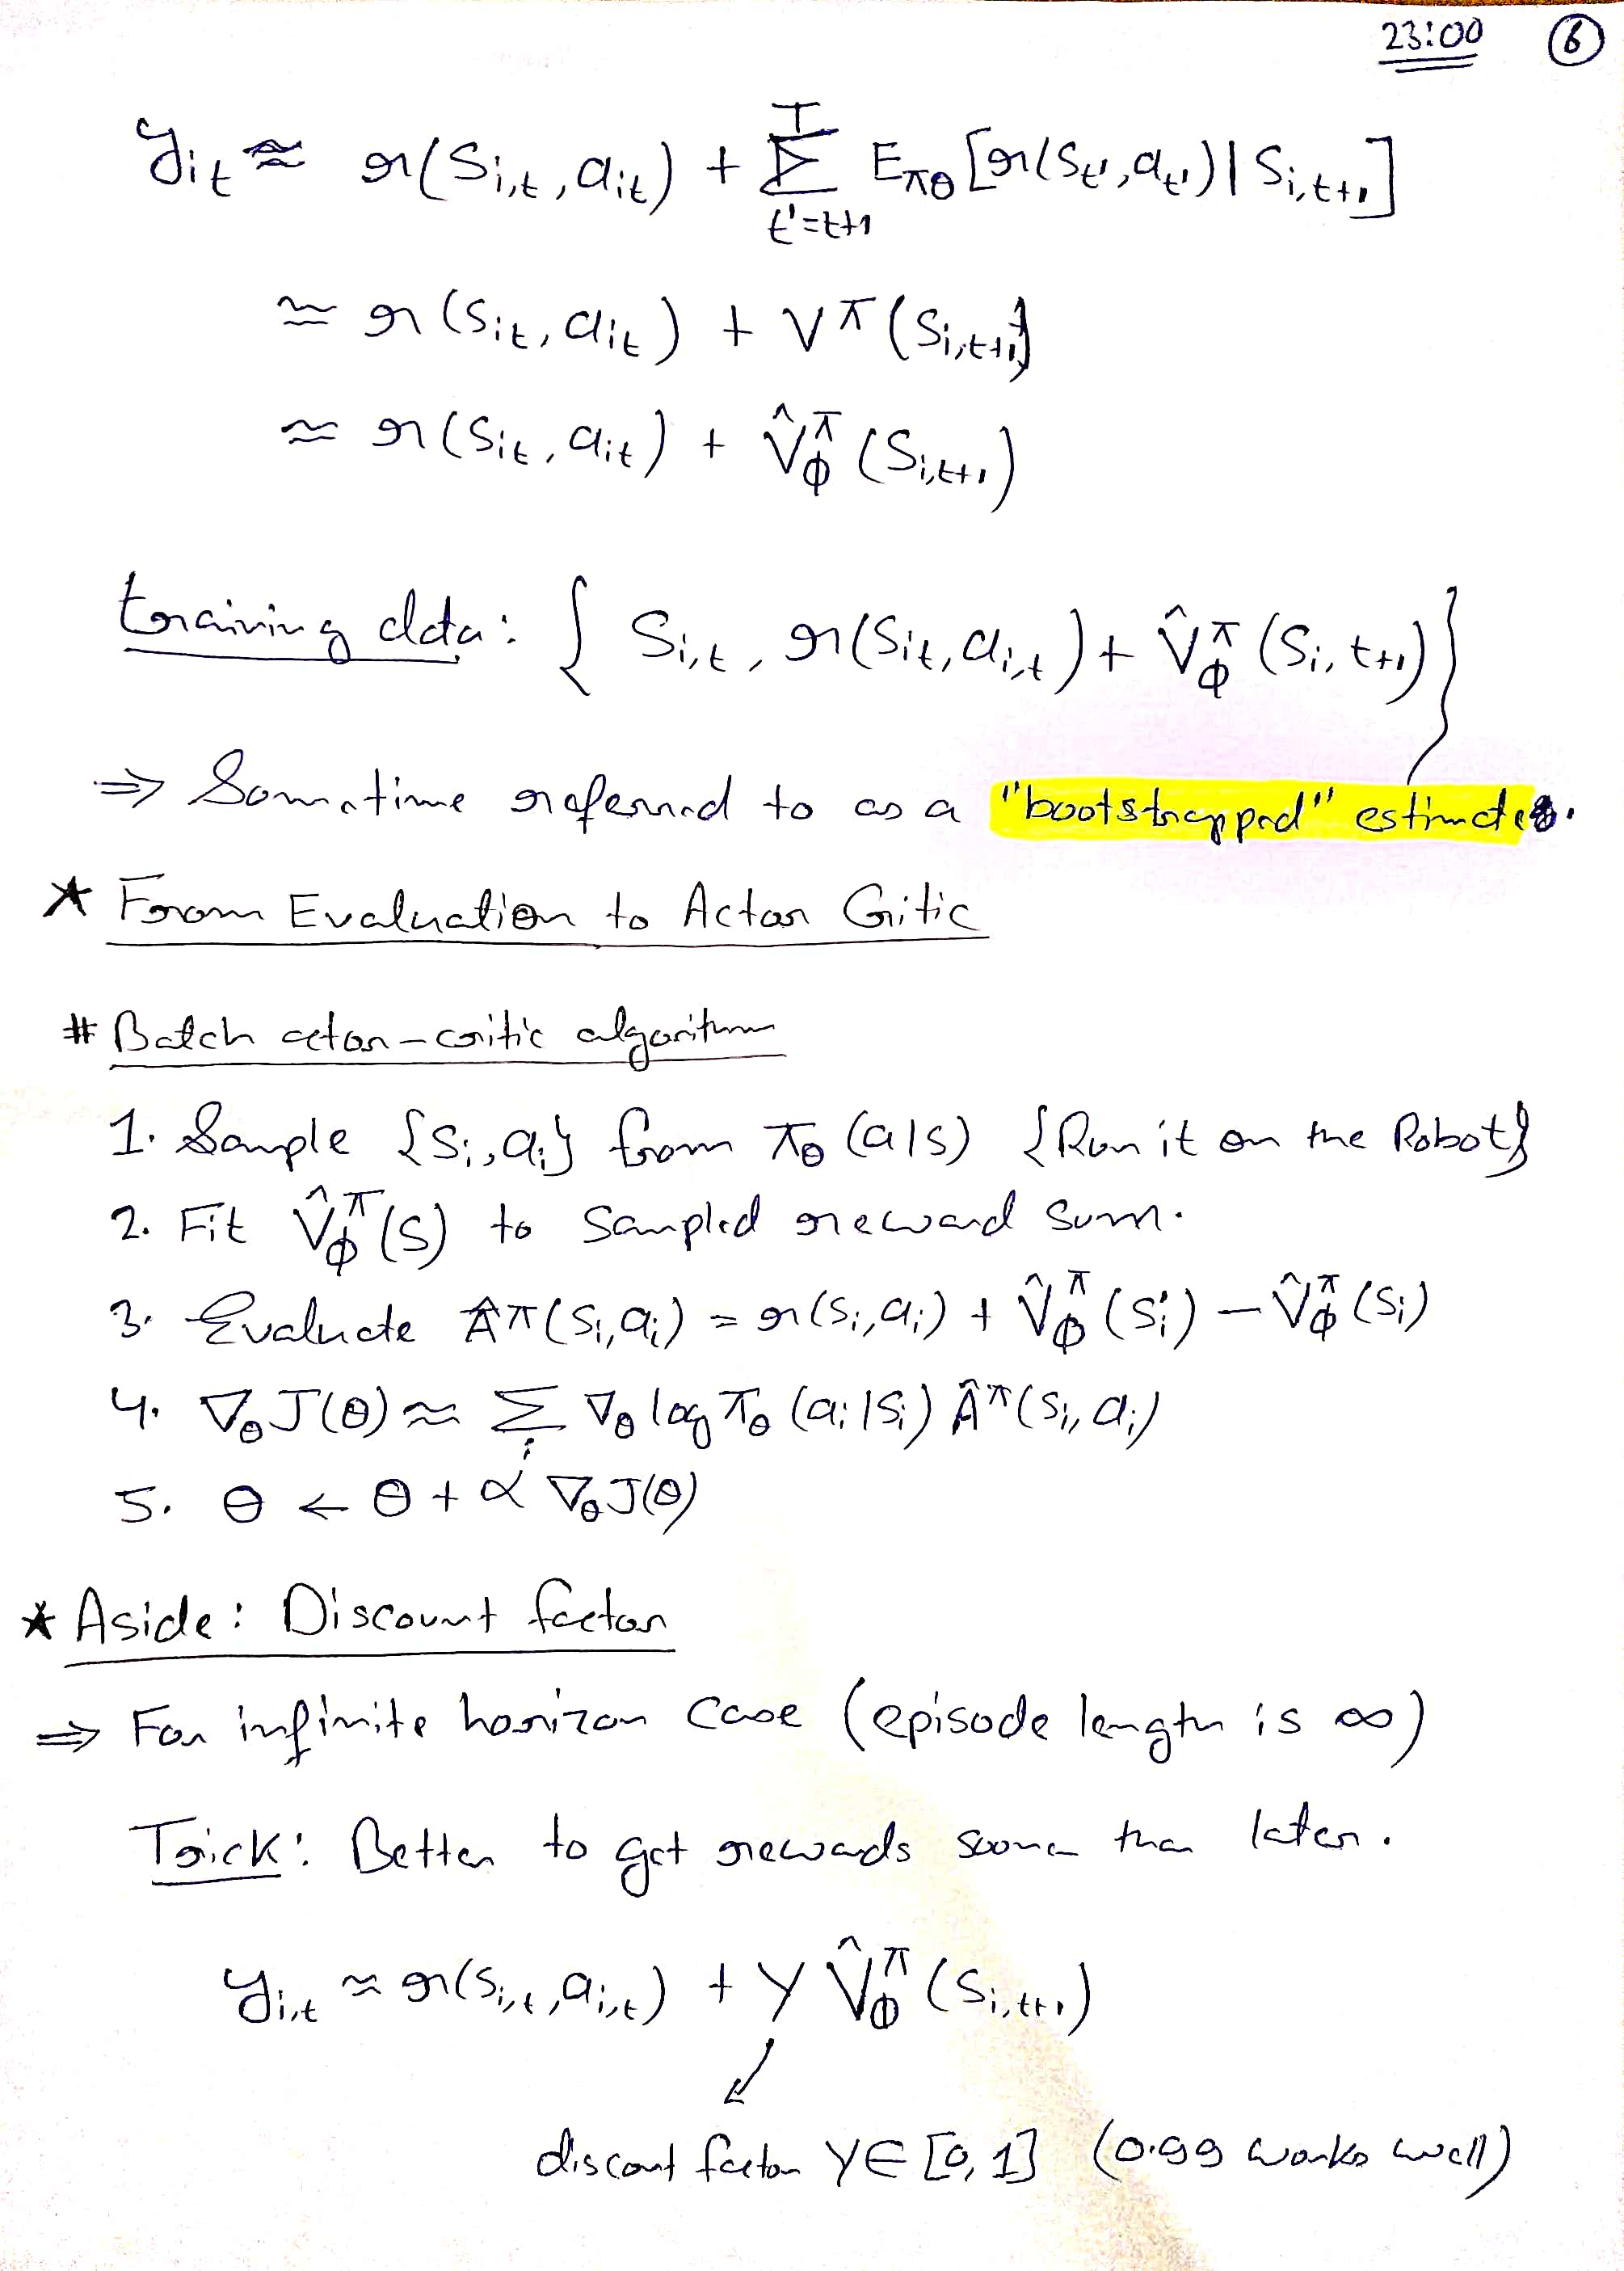 23:00 ⑥
y_it ≈ r(s_i,t, a_it) + Σ_{t'=t+1}^{T} E_πθ [r(s_t', a_t') | s_i,t+1]
≈ r(s_it, a_it) + V^π(s_i,t+1)
≈ r(s_it, a_it) + V̂^π_ϕ (s_i,t+1)
training data: { s_i,t, r(s_it, a_i,t) + V̂^π_ϕ (s_i,t+1) }
⇒ Sometime referred to as a "bootstrapped" estimate.
* From Evaluation to Actor Critic
# Batch actor-critic algorithm
1. Sample {s_i, a_i} from π_θ (a|s) {Run it on the Robot}
2. Fit V̂^π_ϕ(s) to sampled reward sum.
3. Evaluate Â^π(s_i, a_i) = r(s_i, a_i) + V̂^π_ϕ (s_i') − V̂^π_ϕ (s_i)
4. ∇_θ J(θ) ≈ Σ_i ∇_θ log π_θ (a_i|s_i) Â^π(s_i, a_i)
5. θ ← θ + α ∇_θ J(θ)
* Aside: Discount factor
⇒ For infinite horizon case (episode length is ∞)
Trick: Better to get rewards sooner than later.
y_i,t ≈ r(s_i,t, a_i,t) + γ V̂^π_ϕ (s_i,t+1)
discount factor γ ∈ [0, 1] (0.99 works well)